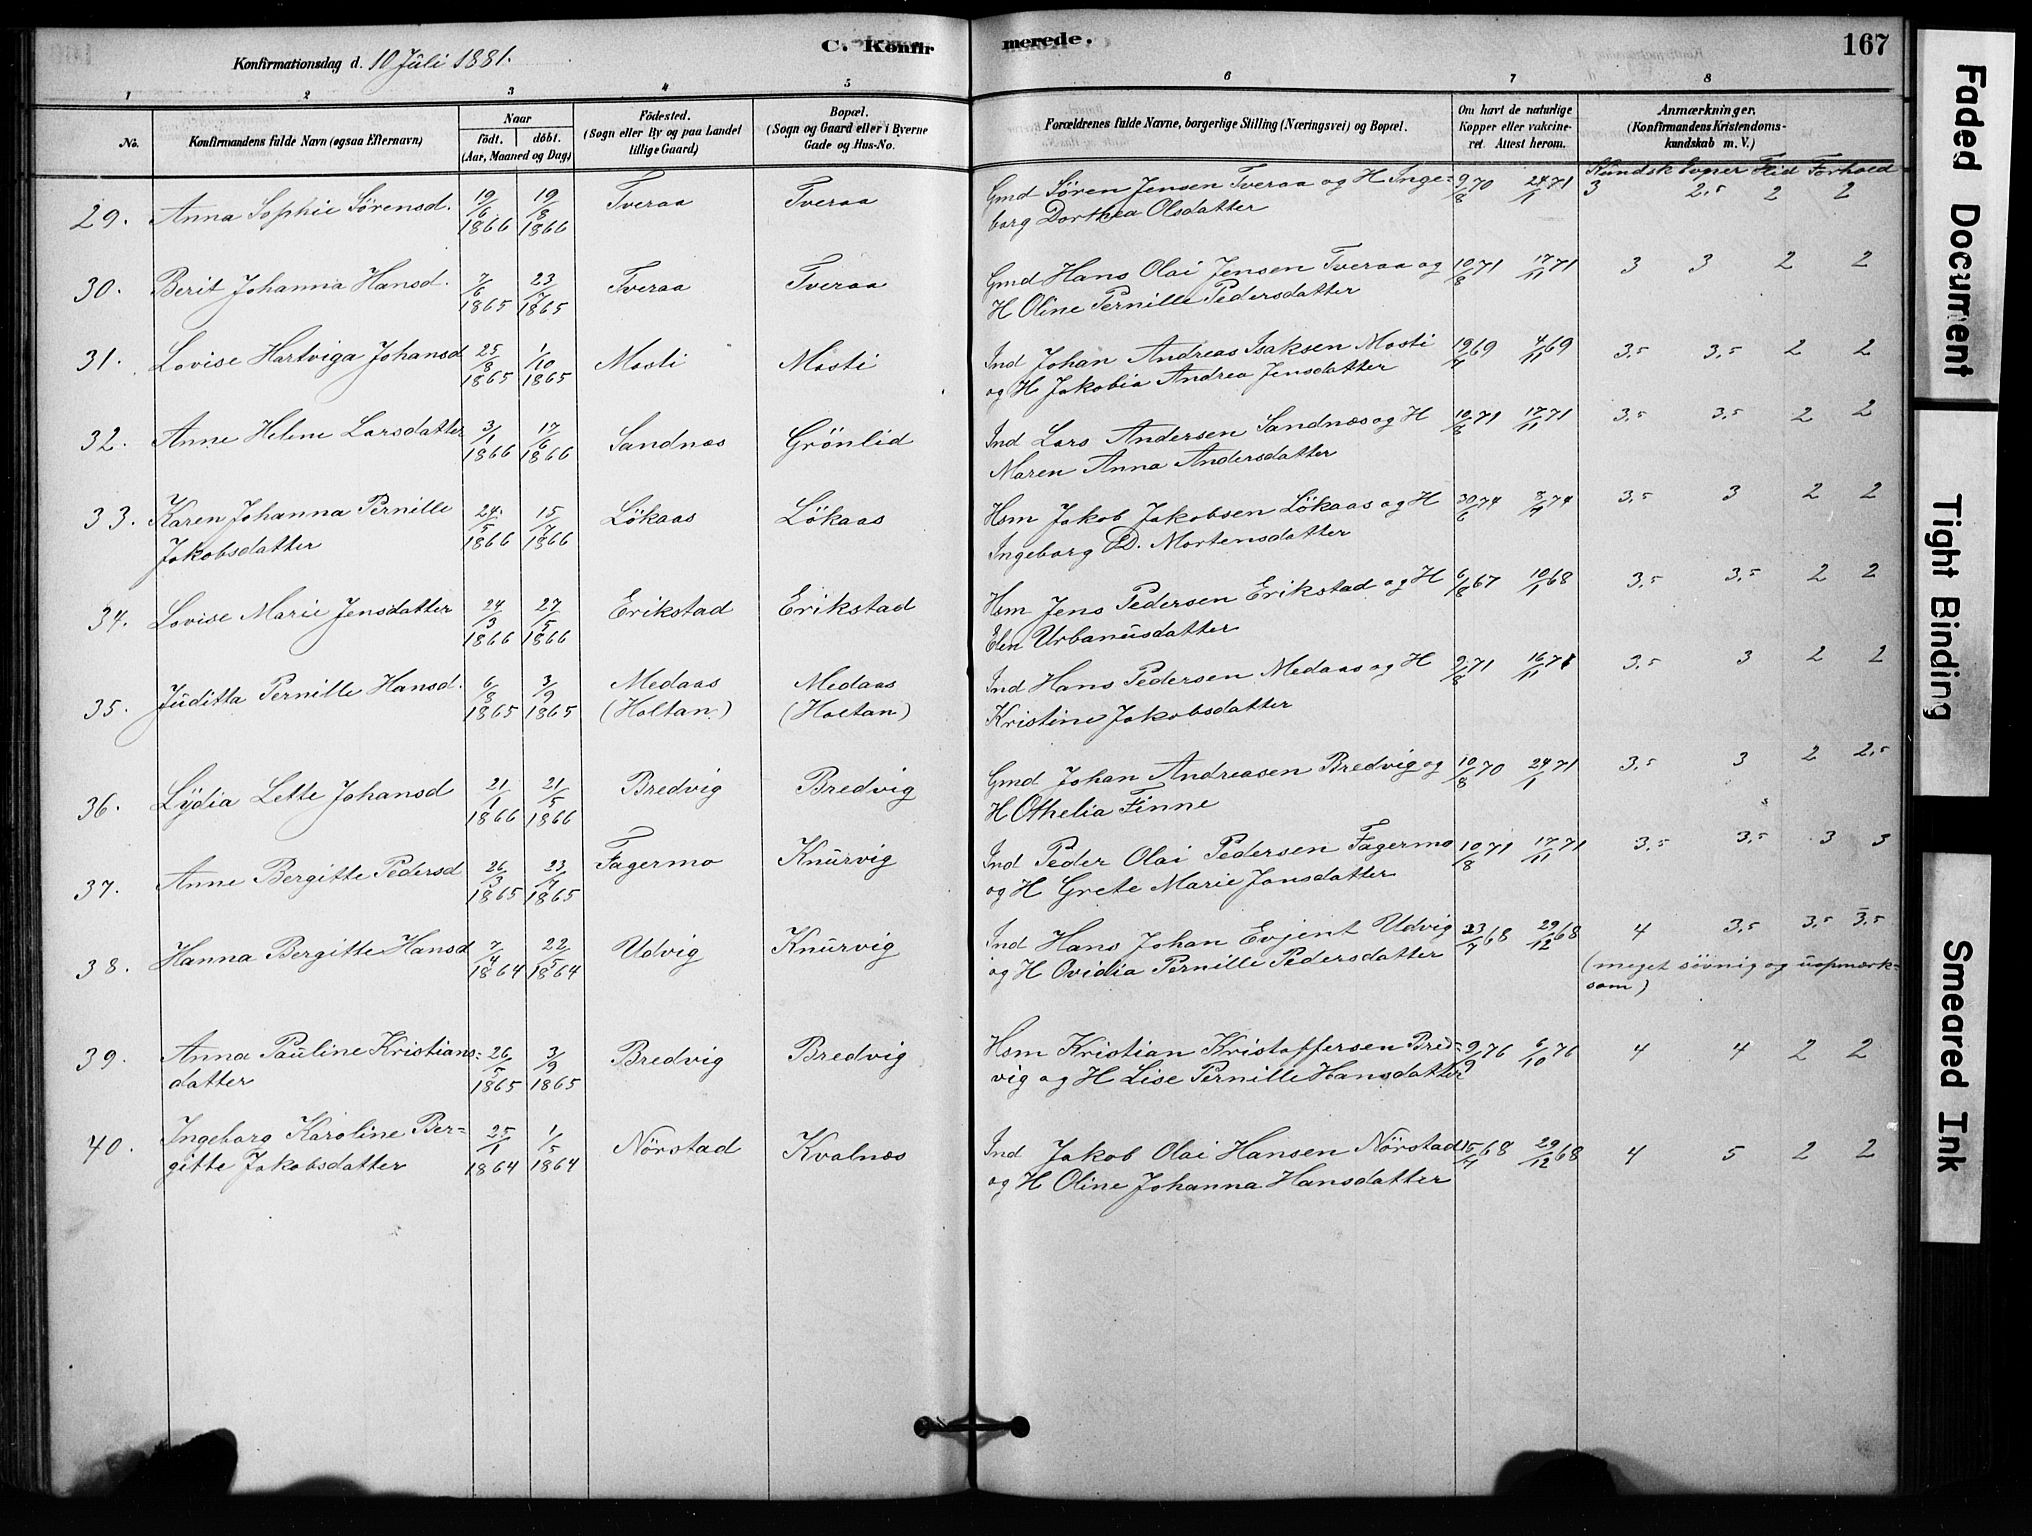 C. Konfirmerede.
167
Konfirmationsdag d. 10 Juli 1881.
1 2 3 4 5 6 7 8
No.
Konfirmandens fulde Navn (ogsaa Efternavn)
Naar
födt. döbt.
(Aar, Maaned og Dag)
Födested.
(Sogn eller By og paa Landet
tillige Gaard)
Bopæl.
(Sogn og Gaard eller i Byerne
Gade og Hus-No.
Forældrenes fulde Navne, borgerlige Stilling (Næringsvei) og Bopæl.
Om havt de naturlige
Kopper eller vakcine-
ret. Attest herom.
Anmærkninger.
(Konfirmandens Kristendoms-
kundskab m. V.)
Kundsk Evner Flid Forhold
29. Anna Sophie Sörensd. 19/6 1866 19/8 1866 Tveraa Tveraa Gmd Sören Jensen Tveraa og H Inge- 9/8 70 24/1 71 3 2,5 2 2
borg Dorthea Olsdatter
30. Berit Johanna Hansd. 7/6 1865 23/7 1865 Tveraa Tveraa Gmd Hans Olai Jensen Tveraa og 10/8 71 17/11 71 3 3 2 2
H Oline Pernille Pedersdatter
31. Lovise Hartviga Johansd 25/8 1865 1/10 1865 Mosti Mosti Ind Johan Andreas Isaksen Mosti 19/7 69 4/11 69 3,5 3,5 2 2
og H Jakobia Andrea Jensdatter
32. Anne Helene Larsdatter 3/1 1866 17/6 1866 Sandnæs Grönlid Ind Lars Andersen Sandnæs og H 10/8 71 17/11 71 3,5 3,5 2 2
Maren Anna Andersdatter
33. Karen Johanna Pernille 24/5 1866 15/7 1866 Lökaas Lökaas Hsm Jakob Jakobsen Lökaas og H 30/6 74 3/7 74 3,5 3 2 2
Jakobsdatter Ingeborg D. Mortensdatter
34. Lovise Marie Jensdatter 24/3 1866 27/5 1866 Erikstad Erikstad Hsm Jens Pedersen Erikstad og H 6/8 67 10/1 68 3,5 3,5 2 2
Elen Urbanusdatter
35. Juditta Pernille Hansd. 6/8 1865 3/9 1865 Medaas Medaas Ind Hans Pedersen Medaas og H 9/8 71 16/11 71 3,5 3 2 2
(Holtan) (Holtan) Kristine Jakobsdatter
36. Lydia Lette Johansd 21/1 1866 21/5 1866 Bredvig Bredvig Gmd Johan Andreasen Bredvig og 10/8 70 24/1 71 3,5 3 2 2,5
H Othelia Finne
37. Anne Bergitte Pedersd 26/3 1865 23/7 1865 Fagermo Knurvig Ind Peder Olai Pedersen Fagermo 10/8 71 17/11 71 3,5 3,5 3 3
og H Grete Marie Jonsdatter
38. Hanna Bergitte Hansd 7/4 1864 22/5 1864 Udvig Knurvig Ind Hans Johan Evjent Udvig 23/7 68 29/12 68 4 3,5 3,5 3,5
og H Ovidia Pernille Pedersdatter (meget sövnig og uopmærk-
som)
39. Anna Pauline Kristians- 26/5 1865 3/9 1865 Bredvig Bredvig Hsm Kristian Kristoffersen Bred- 9/9 76 6/10 76 4 4 2 2
datter vig og H Lise Pernille Hansdatter
40. Ingeborg Karoline Ber- 25/1 1864 1/5 1864 Nörstad Kvalnæs Ind Jakob Olai Hansen Nörstad 15/7 68 29/12 68 4 5 2 2
gitte Jakobsdatter og H Oline Johanna Hansdatter
Faded Document
Tight Binding
Smeared Ink